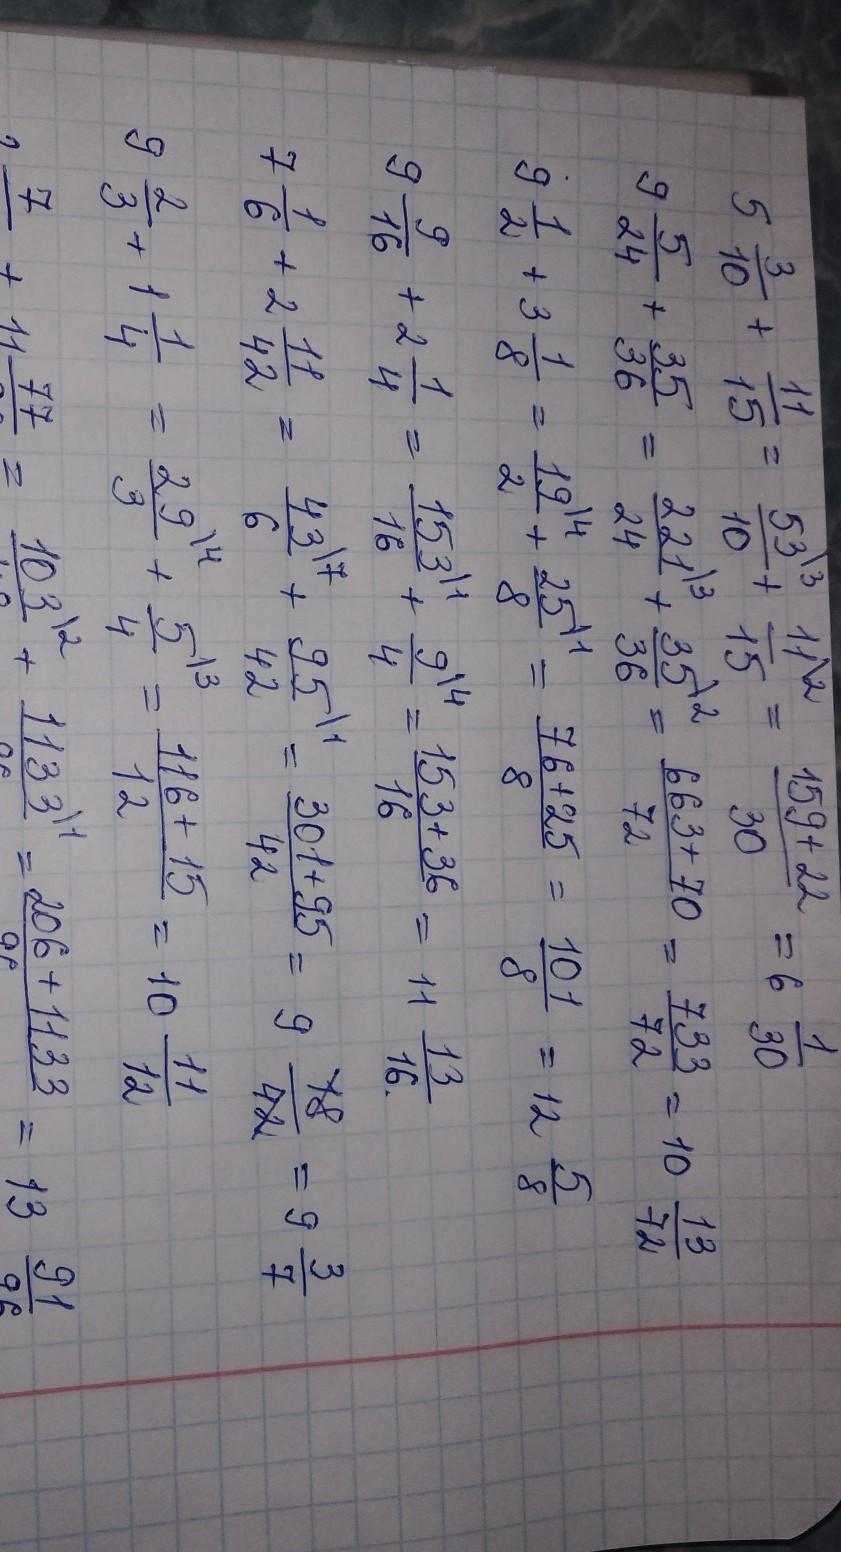 5 3/10 + 11/15 = 53\3/10 + 11\2/15 = 159+22/30 = 6 1/30
9 5/24 + 35/36 = 221\3/24 + 35\2/36 = 663+70/72 = 733/72 = 10 13/72
9 1/2 + 3 1/8 = 19\4/2 + 25\1/8 = 76+25/8 = 101/8 = 12 5/8
9 9/16 + 2 1/4 = 153\1/16 + 9\4/4 = 153+36/16 = 11 13/16.
7 1/6 + 2 11/42 = 43\7/6 + 95\1/42 = 301+95/42 = 9 18/42 = 9 3/7
9 2/3 + 1 1/4 = 29\4/3 + 5\3/4 = 116+15/12 = 10 11/12
7 + 11 77 = 103\2 + 1133\1 = 206+1133 = 13 91/96